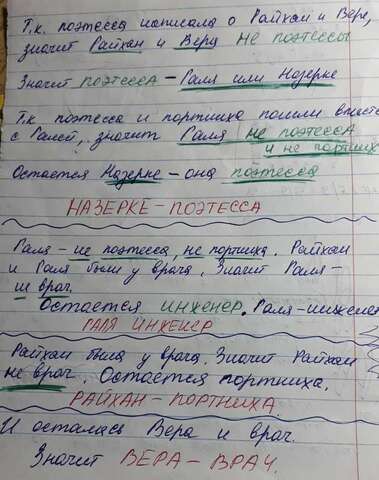 Т.к. поэтесса написала о Райхан и Вере,
значит Райхан и Вера не поэтессы
Значит поэтесса – Галя или Назерке
Т.к поэтесса и портниха пошли вместе
с Галей, значит Галя не поэтесса
и не портних
Остается Назерке – она поэтесса
НАЗЕРКЕ – ПОЭТЕССА
Галя – не поэтесса, не портниха. Райхан
и Галя были у врача. Значит Галя –
не врач.
Остается ИНЖЕНЕР. Галя – инженер
ГАЛЯ ИНЖЕНЕР
Райхан была у врача. Значит Райхан
не врач. Остается портниха.
РАЙХАН – ПОРТНИХА.
И осталась Вера и врач.
Значит ВЕРА – ВРАЧ.